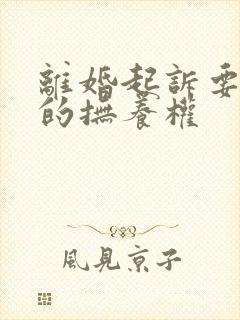 離婚起訴要
的撫養權
風見京子